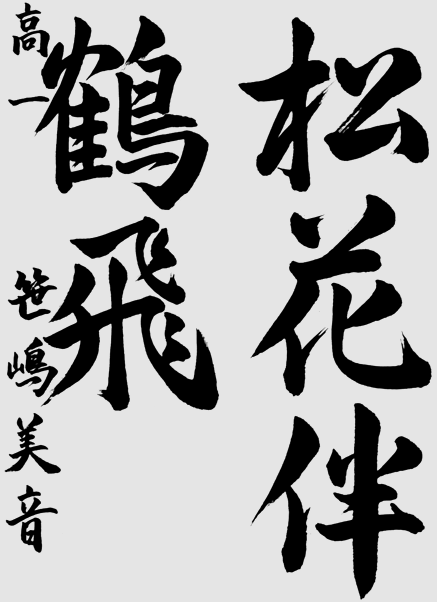 松花伴
鶴飛
高一 笹嶋美音